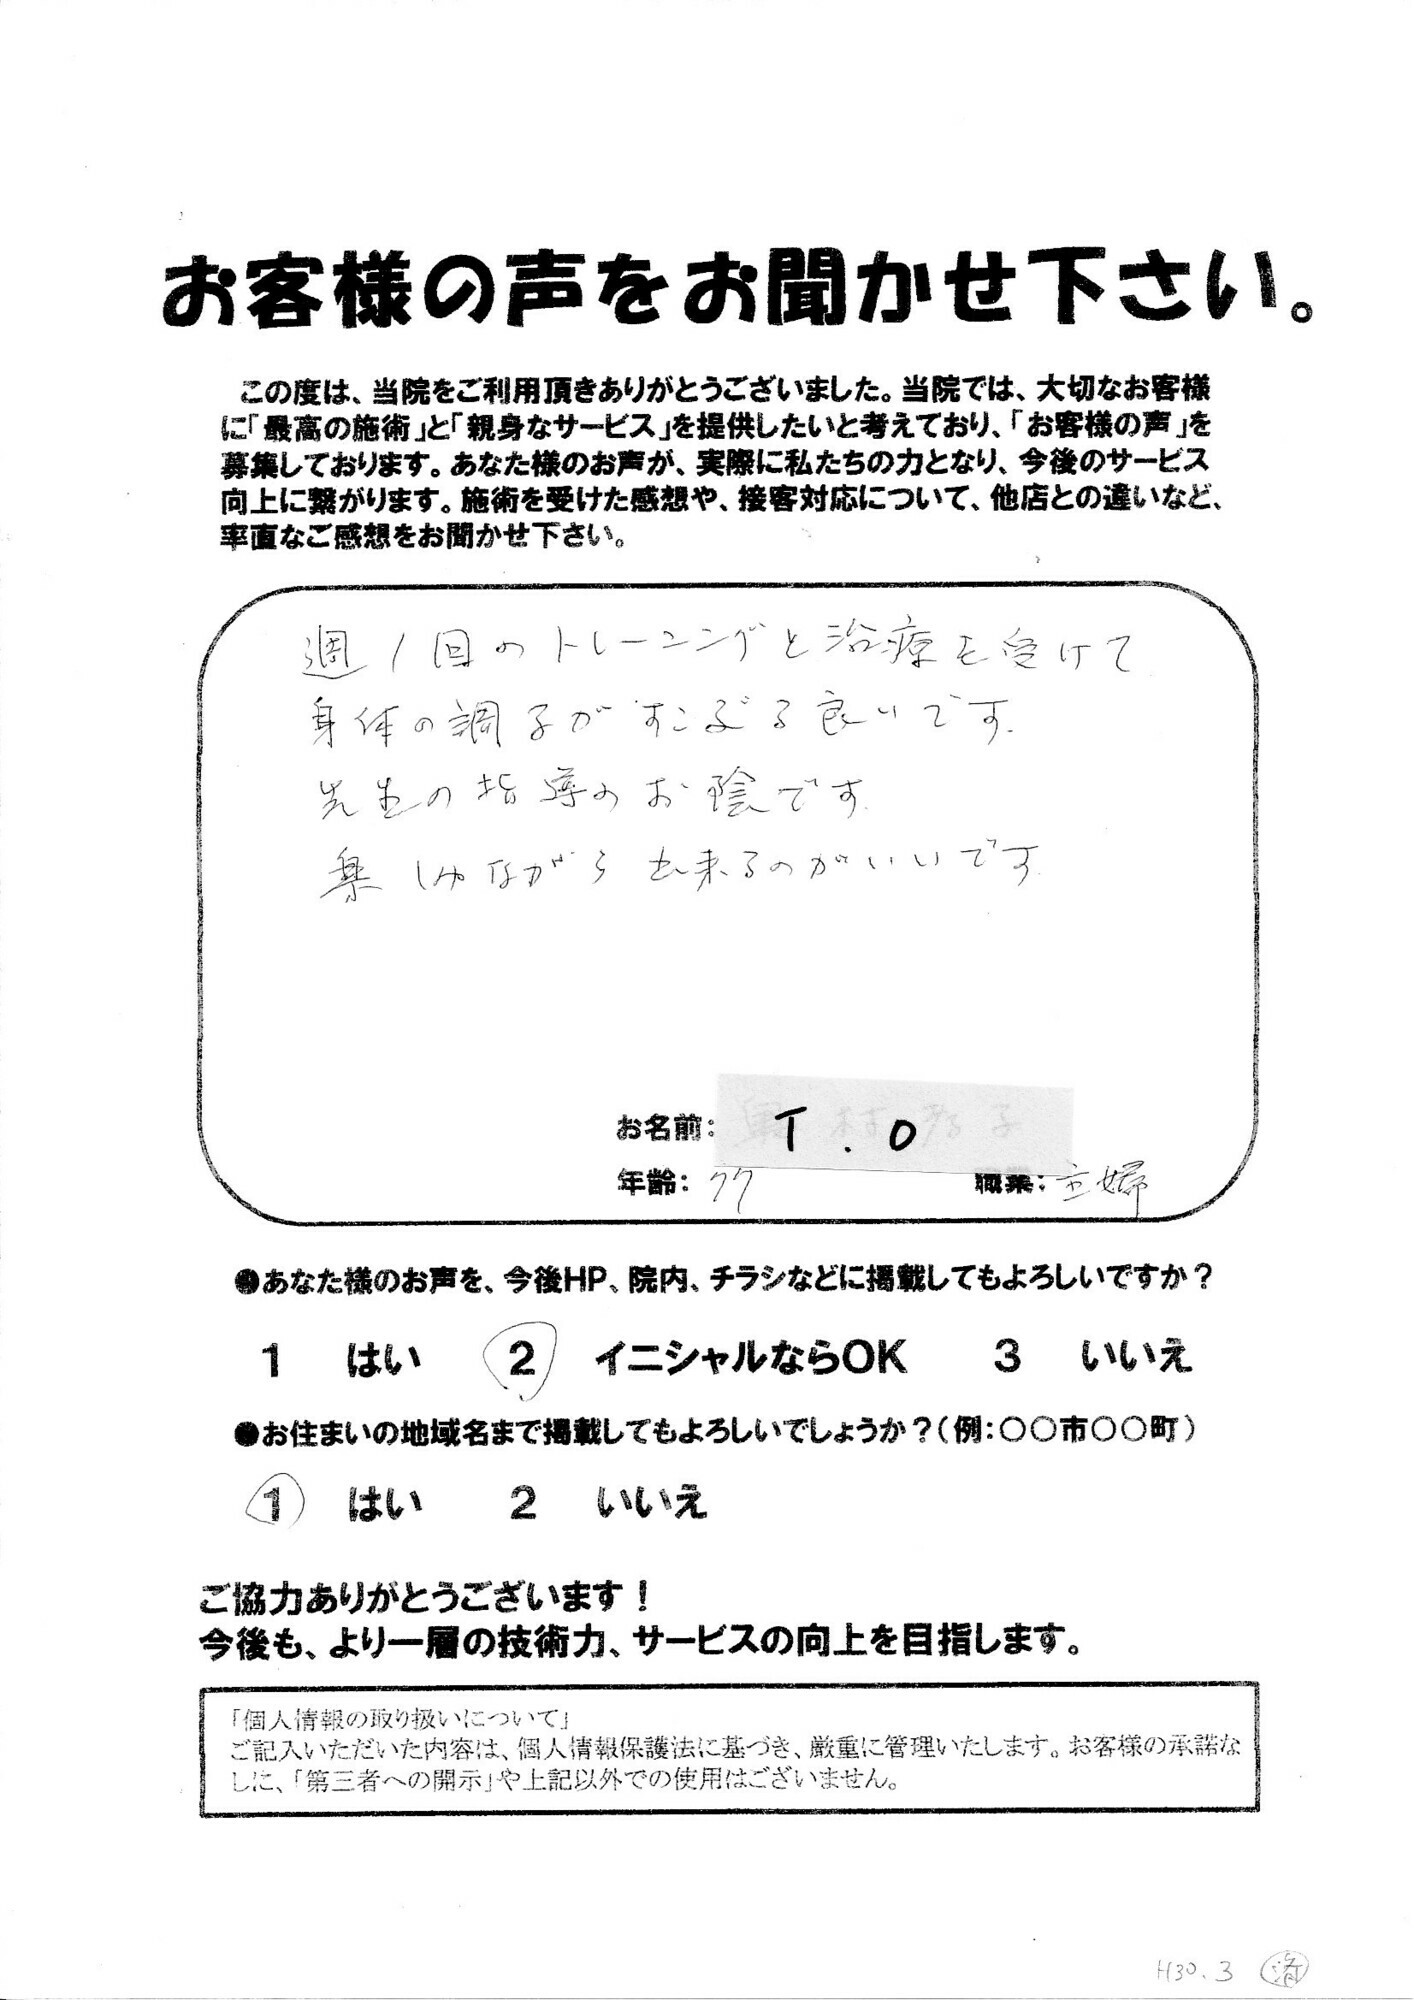 お客様の声をお聞かせ下さい。
この度は、当院をご利用頂きありがとうございました。当院では、大切なお客様
に「最高の施術」と「親身なサービス」を提供したいと考えており、「お客様の声」を
募集しております。あなた様のお声が、実際に私たちの力となり、今後のサービス
向上に繋がります。施術を受けた感想や、接客対応について、他店との違いなど、
率直なご感想をお聞かせ下さい。
週1回のトレーニングと治療を受けて
身体の調子がすこぶる良いです.
先生の指導のお陰です.
楽しみながら出来るのがいいです.
お名前: T.O
年齢: 77 職業: 主婦
●あなた様のお声を、今後HP、院内、チラシなどに掲載してもよろしいですか？
1 はい 2 イニシャルならOK 3 いいえ
●お住まいの地域名まで掲載してもよろしいでしょうか？（例：○○市○○町）
1 はい 2 いいえ
ご協力ありがとうございます！
今後も、より一層の技術力、サービスの向上を目指します。
「個人情報の取り扱いについて」
ご記入いただいた内容は、個人情報保護法に基づき、厳重に管理いたします。お客様の承諾な
しに、「第三者への開示」や上記以外での使用はございません。
H30.3 済